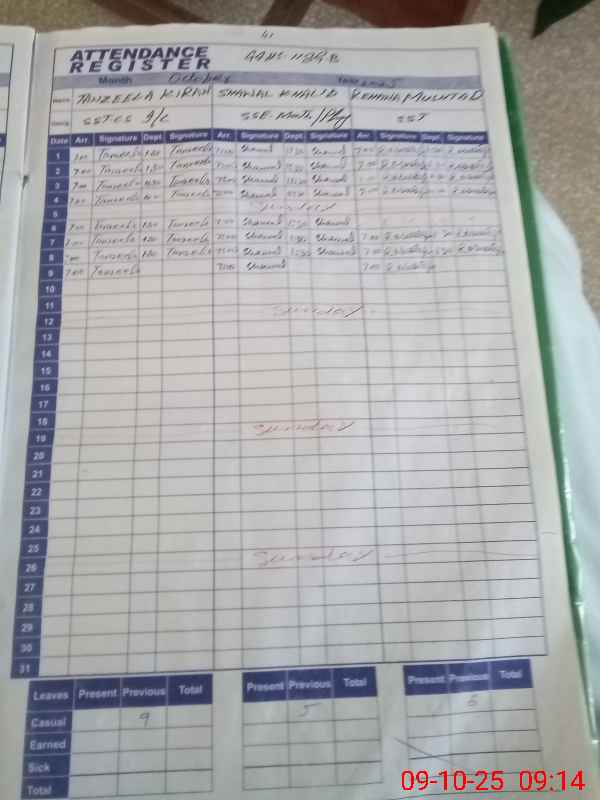 41
ATTENDANCE
REGISTER
Month October Year 2025
Name TANZEELA KIRAN SHAWAL KHALID REHANA MUSHTAQ
SST CS I/C SSE-Math/Phy SST
Date Arr. Signature Dept. Signature Arr. Signature Dept. Signature Arr. Signature Dept. Signature
1 7:00 Tanzeela 1:30 Tanzeela 7:00 Shawal 1:30 Shawal 7:00
2 7:00 Tanzeela 1:30 Tanzeela 7:00 Shawal 1:30 Shawal 7:00
3 7:00 Tanzeela 1:30 Tanzeela 7:00 Shawal 1:30 Shawal 7:00
4 7:00 Tanzeela Tanzeela 7:00 Shawal 1:30 Shawal 7:00
5 Sunday
6 7:00 Tanzeela 1:30 Tanzeela 7:00 Shawal 1:30 Shawal
7 7:00 Tanzeela 1:30 Tanzeela 7:00 Shawal 1:30 Shawal 7:00
8 7:00 Tanzeela 1:30 Tanzeela 7:00 Shawal 1:30 Shawal 7:00
9 7:00 Tanzeela 7:00 Shawal 7:00
10
11
12 Sunday
13
14
15
16
17
18
19 Sunday
20
21
22
23
24
25
26 Sunday
27
28
29
30
31
Leaves Present Previous Total Present Previous Total Present Previous Total
Casual 9 5 6
Earned
Sick
Total
09-10-25 09:14